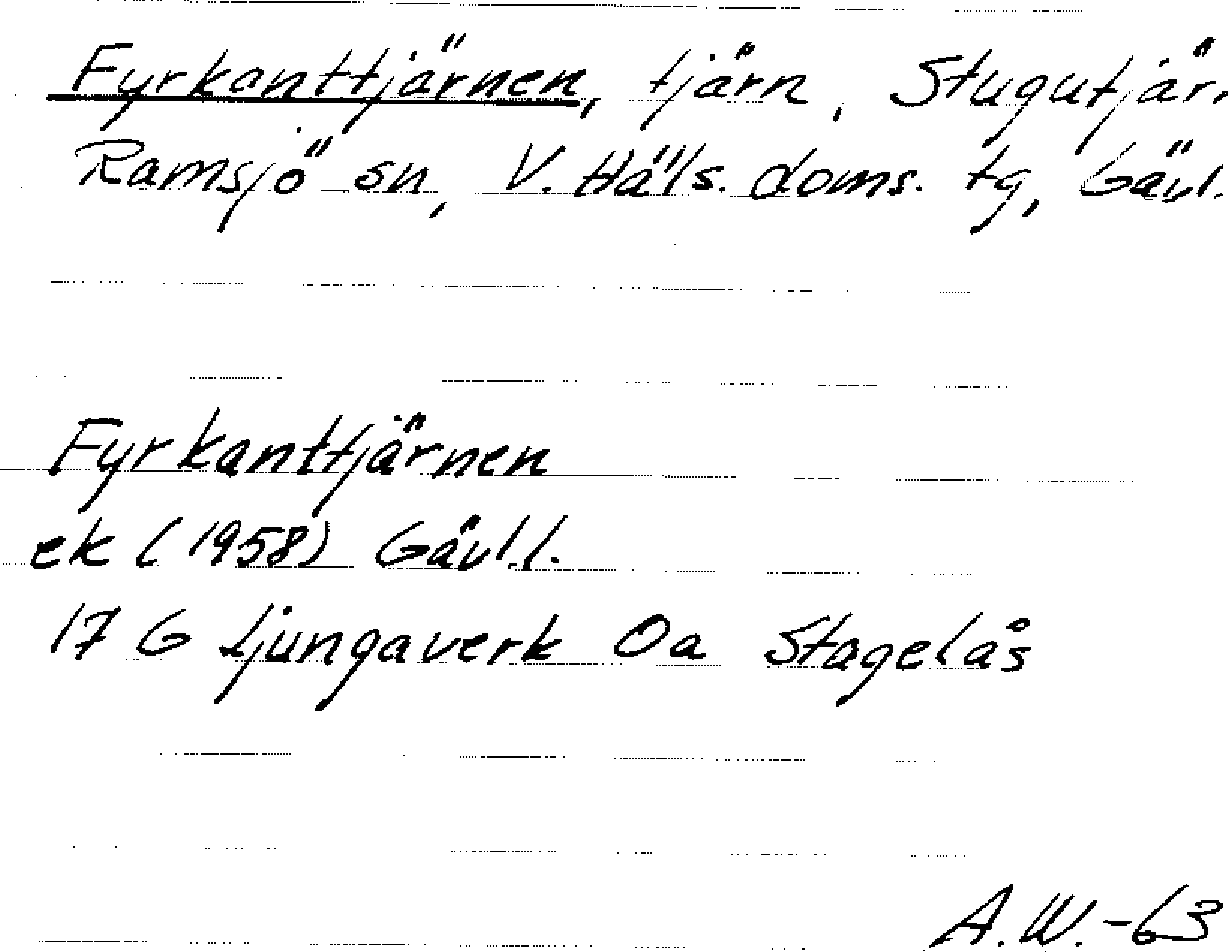 Fyrkanttjärnen, tjärn, Stugutjär
Ramsjö sn, V. Häls. doms. tg, Gävl.
Fyrkanttjärnen
ek (1958) Gävl.l.
17 G Ljungaverk Oa Stagelås
A.W.-63